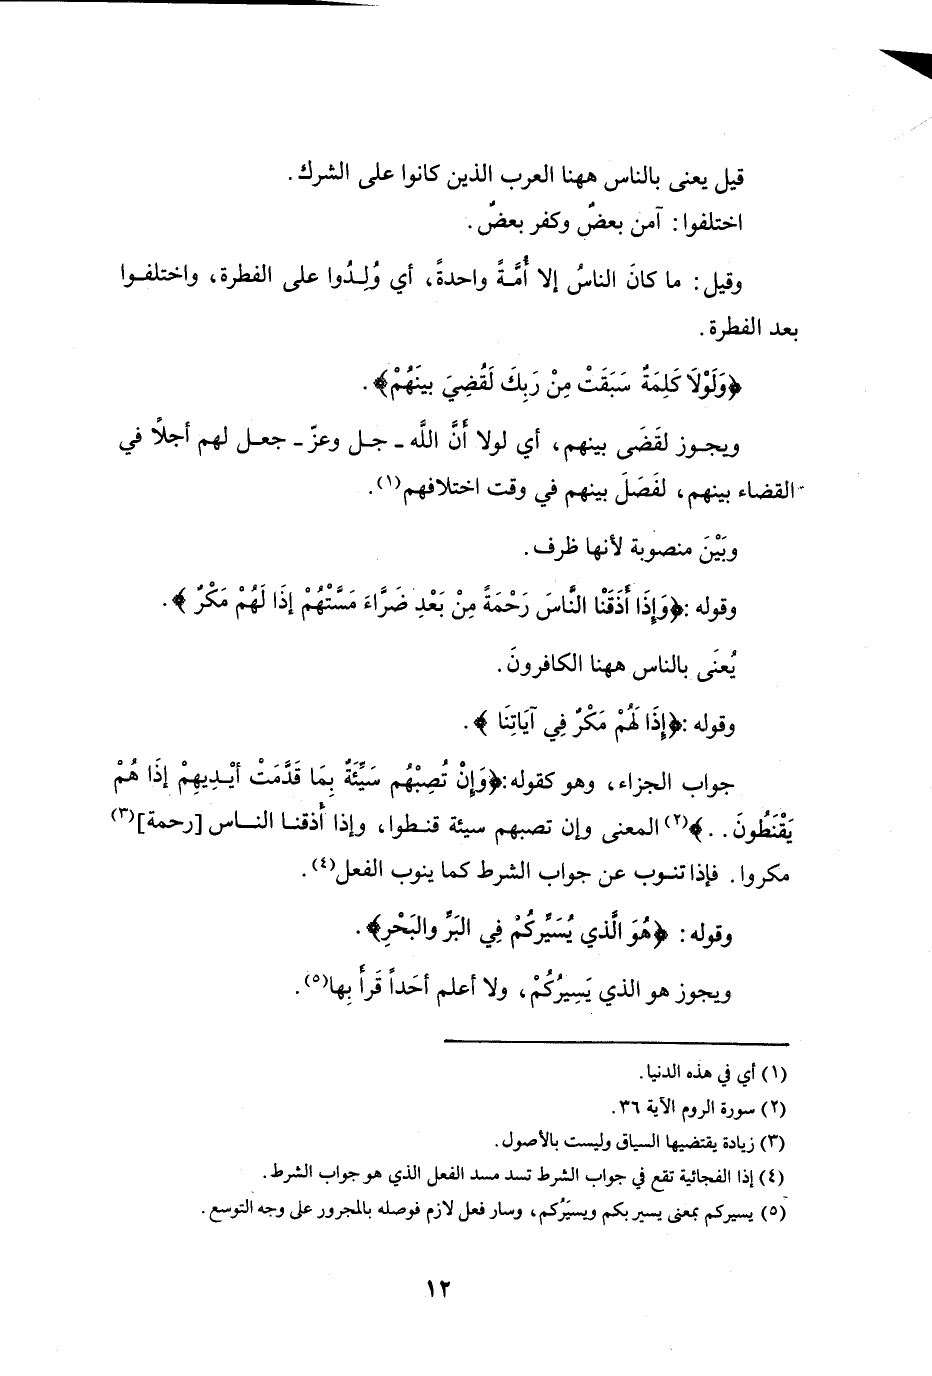 قيل يعنى بالناس ههنا العرب الذين كانوا على الشرك.
اختلفوا: آمن بعضٌ وكفر بعضٌ.
وقيل: ما كانَ الناسُ إلا أُمَّةً واحدةً، أي وُلِدُوا على الفطرة، واختلفوا
بعد الفطرة.
﴿وَلَوْلَا كَلِمَةٌ سَبَقَتْ مِنْ رَبِكَ لَقُضِيَ بينَهُمْ﴾.
ويجوز لقَضَى بينهم، أي لولا أَنَّ اللَّه ـ جل وعزّ ـ جعل لهم أجلاً في
القضاء بينهم، لفَصَلَ بينهم في وقت اختلافهم(١).
وبَيْنَ منصوبة لأنها ظرف.
وقوله :﴿وَإِذَا أَذَقْنا النَّاسَ رَحْمَةً مِنْ بَعْدِ ضَرَّاءَ مَسَّتْهُمْ إذَا لَهُمْ مَكْرٌ ﴾.
يُعنَى بالناس ههنا الكافرونَ.
وقوله :﴿إِذَا لَهُمْ مَكْرٌ فِي آيَاتِنَا ﴾.
جواب الجزاء، وهو كقوله:﴿وَإِنْ تُصِبْهُم سَيِّئَةٌ بِمَا قَدَّمَتْ أيْدِيهِمْ إذَا هُمْ
يَقْنَطُونَ . .﴾(٢) المعنى وإن تصبهم سيئة قنطوا، وإذا أذقنا الناس [رحمة](٣)
مكروا. فإذا تنوب عن جواب الشرط كما ينوب الفعل(٤).
وقوله: ﴿هُوَ الَّذي يُسَيِّركُمْ فِي البَرِّ والبَحْرِ﴾.
ويجوز هو الذي يَسِيرُكُمْ، ولا أعلم أحَداً قَرأَ بِها(٥).
(١) أي في هذه الدنيا.
(٢) سورة الروم الآية ٣٦.
(٣) زيادة يقتضيها السياق وليست بالأصول.
(٤) إذا الفجائية تقع في جواب الشرط تسد مسد الفعل الذي هو جواب الشرط.
(٥) يسيركم بمعنى يسير بكم ويسيَرُكم، وسار فعل لازم فوصله بالمجرور على وجه التوسع.
١٢